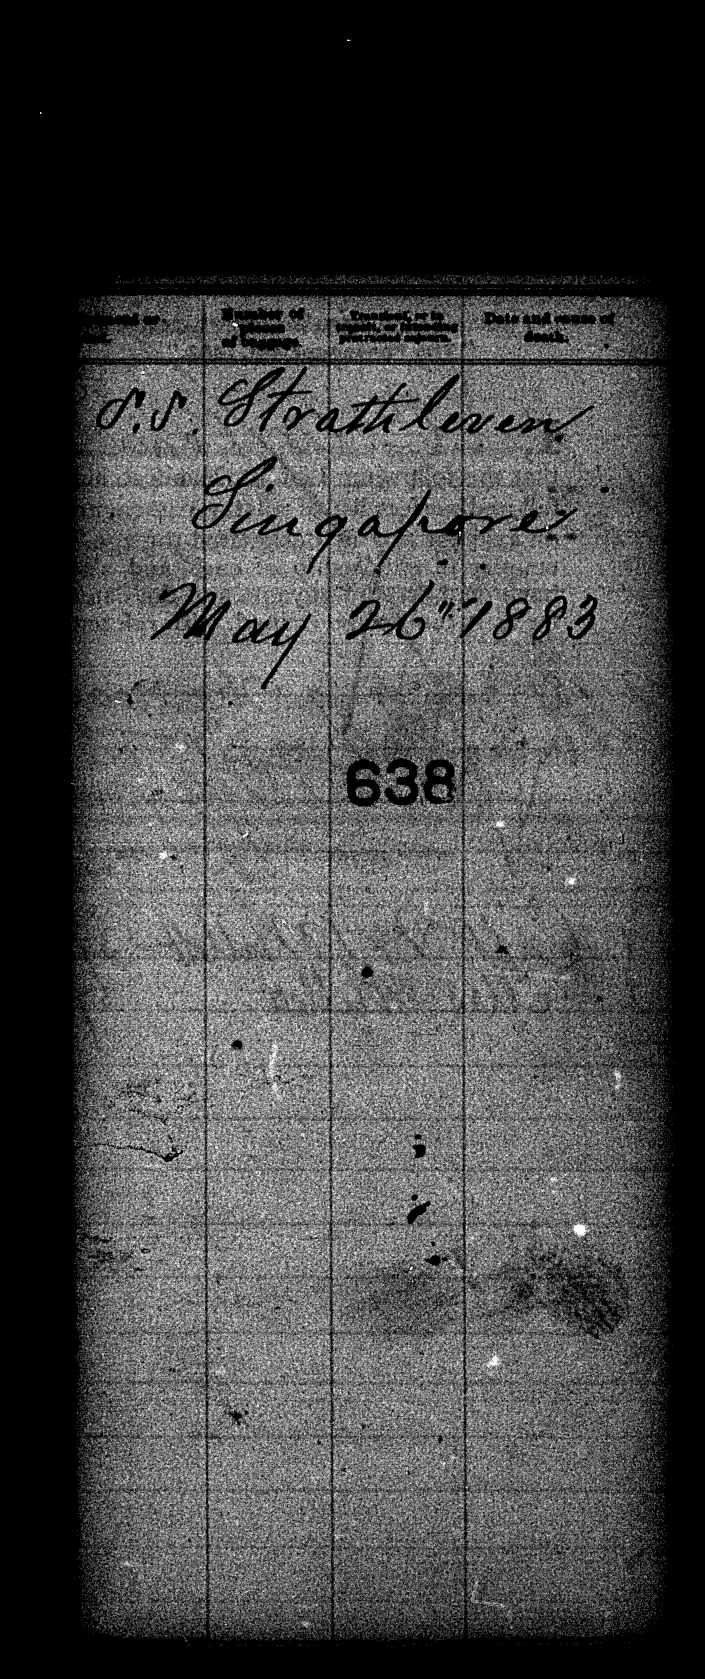 Number of pieces of luggage.
Transient, or in transit, or intending protracted sojourn.
Date and cause of death.
S.S. Strathleven
Singapore
May 26" 1883
638